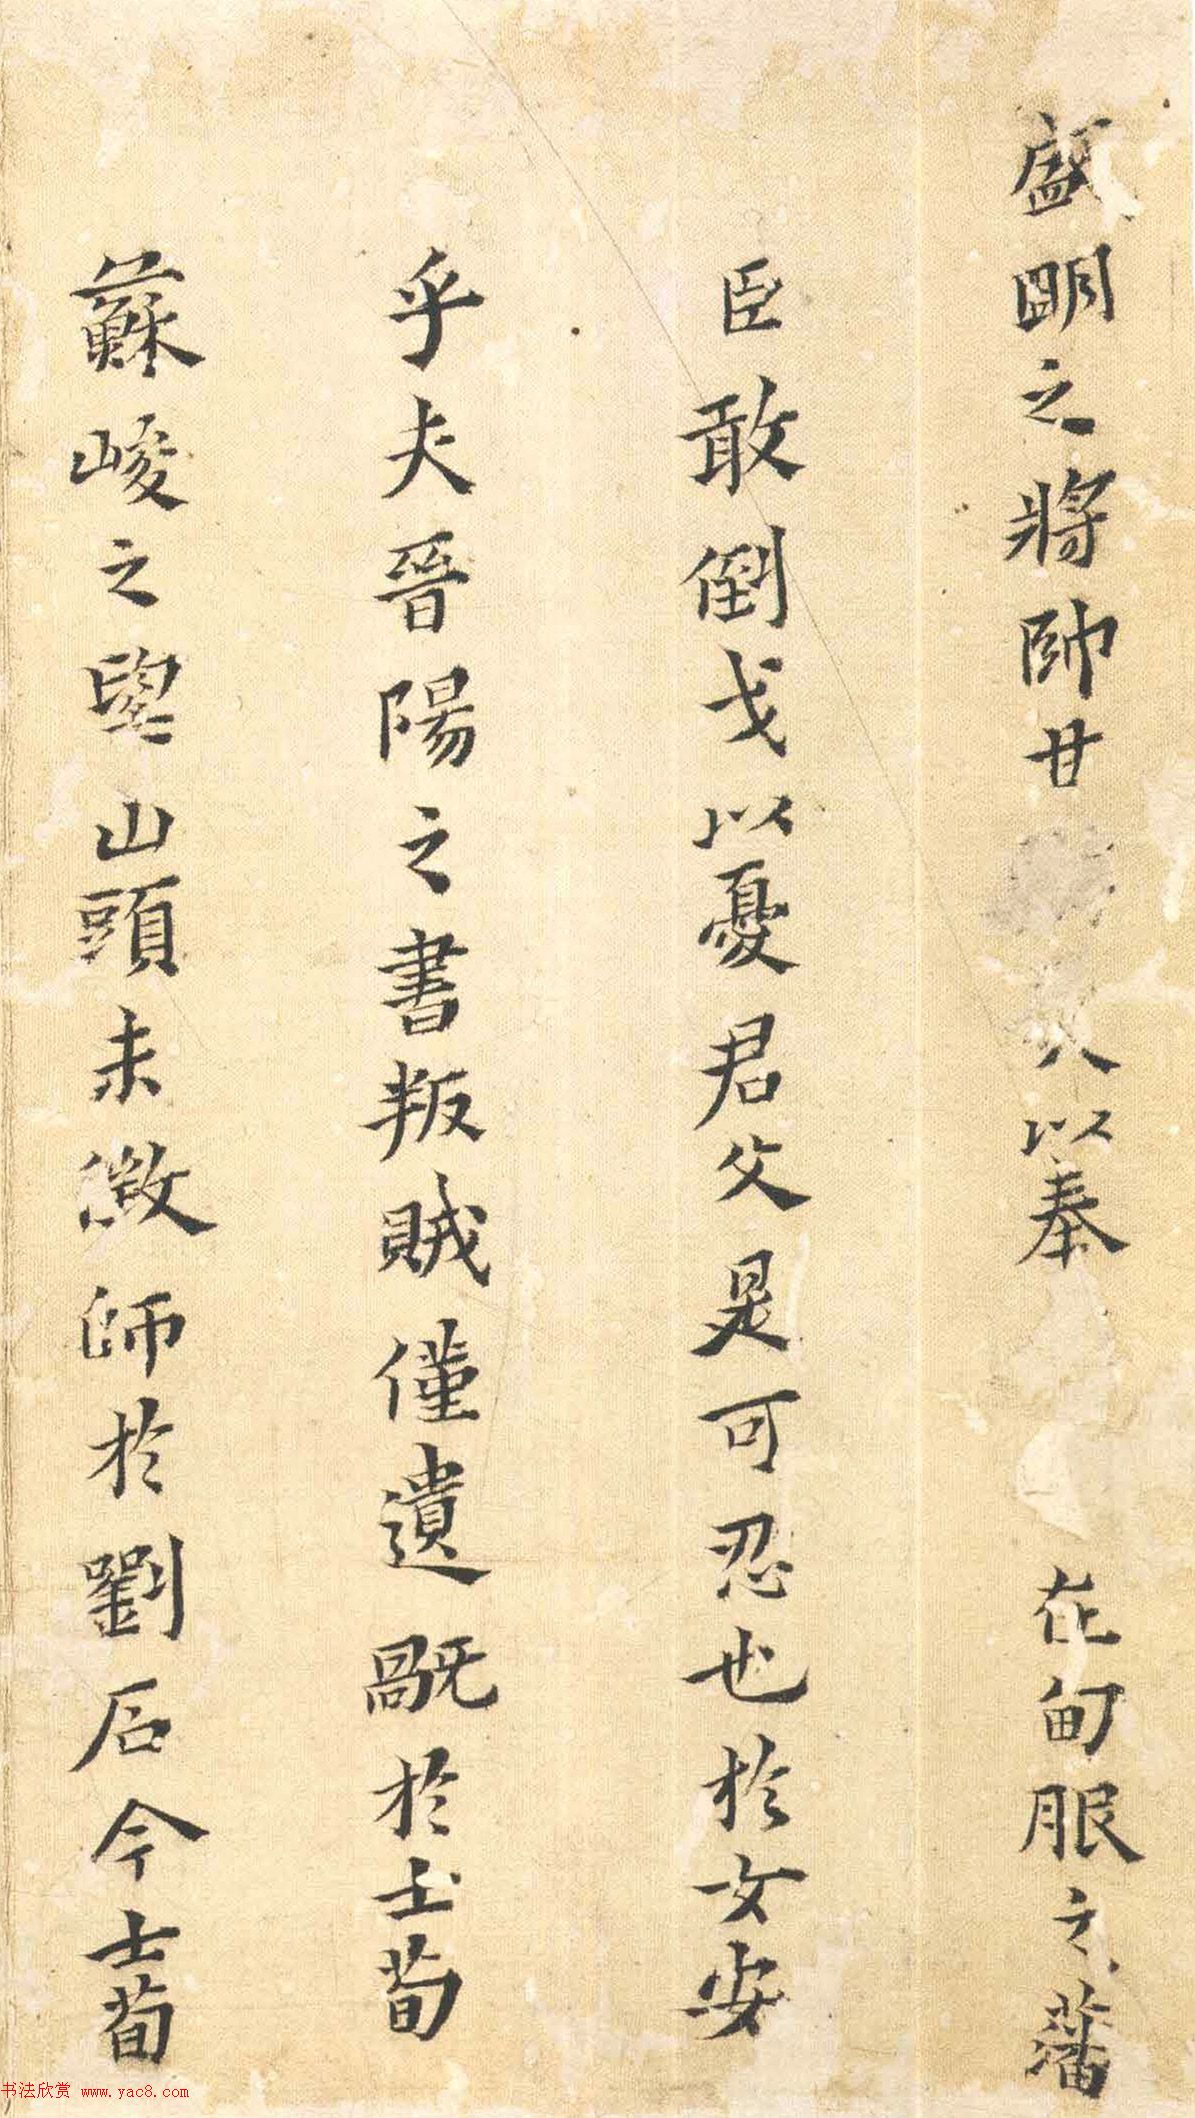 盛明之將帥甘 人以奉 在甸服之藩
臣敢倒戈以憂君父是可忍也於女安
乎夫晉陽之書叛賊僅遺嗣於士蒍
蘇峻之望山頭未徵師於劉后今士蒍
书法欣赏 www.yac8.com